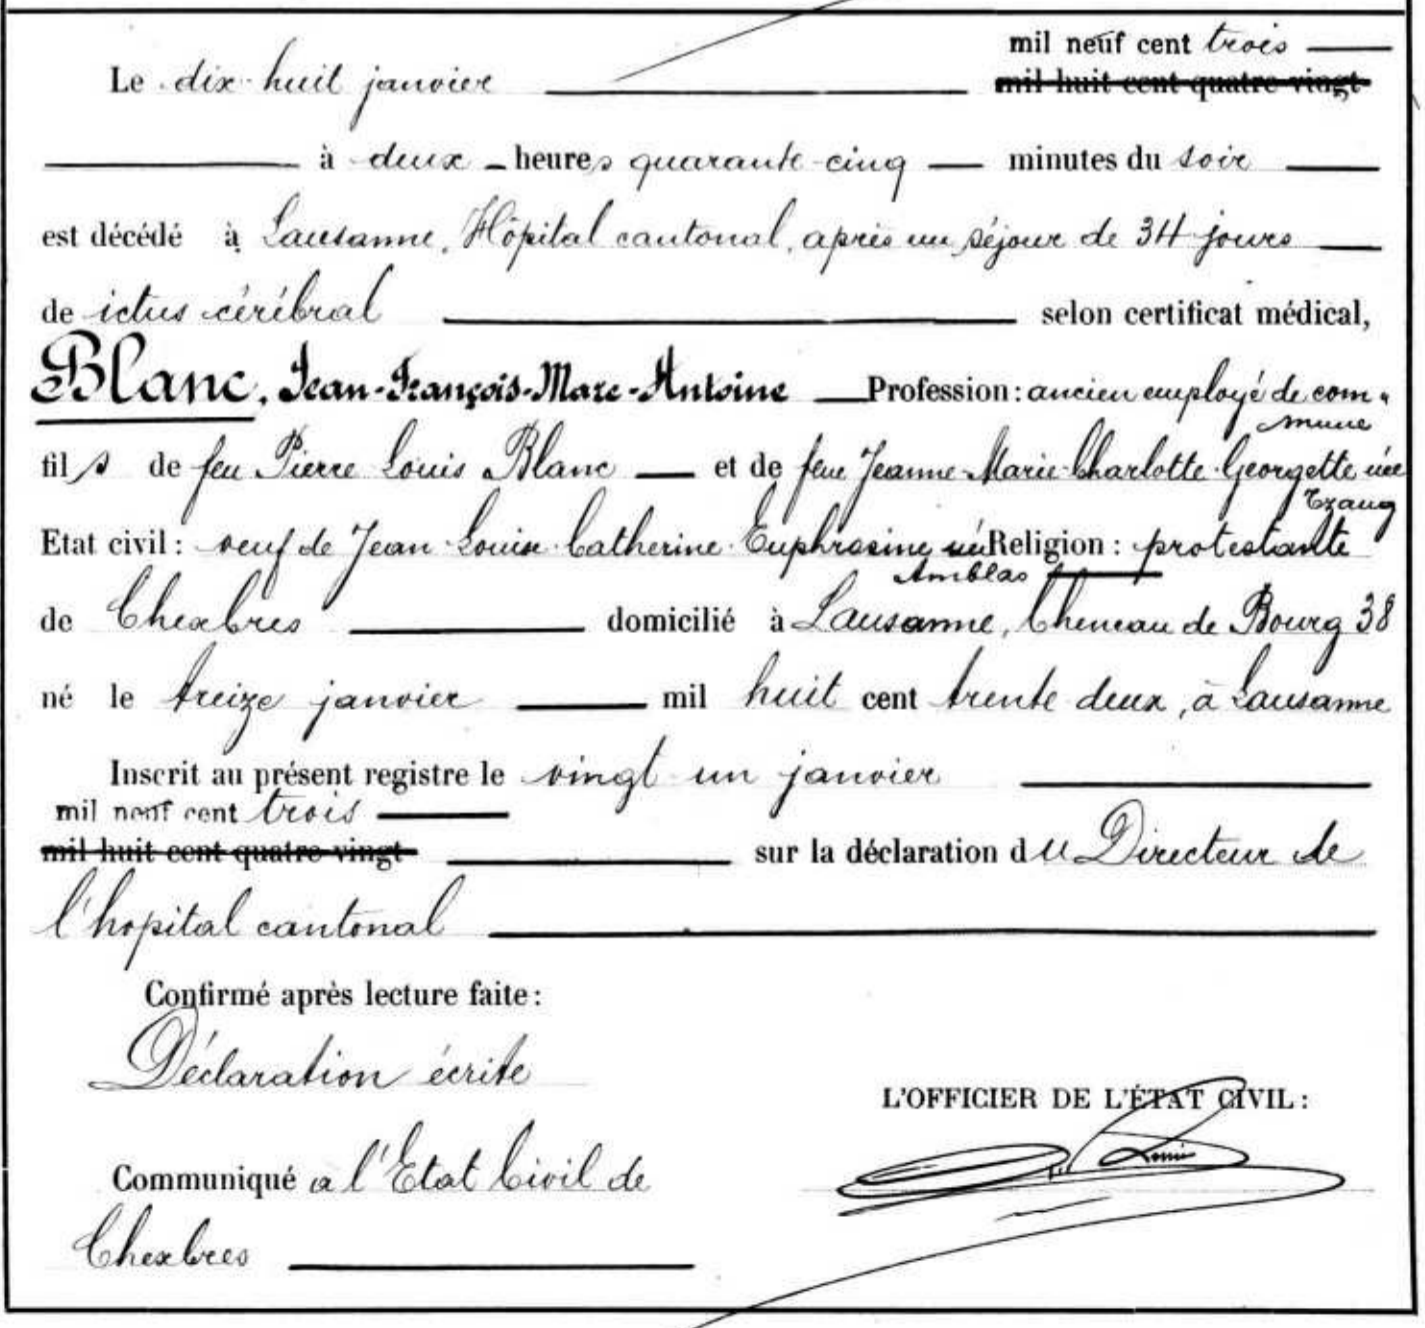 mil neuf cent trois
Le dix-huit janvier mil huit cent quatre-vingt
à deux heures quarante-cinq minutes du soir
est décédé à Lausanne, Hôpital cantonal, après un séjour de 34 jours
de ictus cérébral selon certificat médical,
Blanc, Jean-François-Marc-Antoine Profession: ancien employé de com-
mune
fils de feu Pierre Louis Blanc et de feue Jeanne-Marie-Charlotte-Georgette née
Tzaug
Etat civil: veuf de Jean-Louise-Catherine-Euphrosine née Religion: protestante
Amblas
de Chexbres domicilié à Lausanne, Cheneau de Bourg 38
né le treize janvier mil huit cent trente deux, à Lausanne
Inscrit au présent registre le vingt un janvier
mil neuf cent trois
mil huit cent quatre-vingt sur la déclaration du Directeur de
l'hopital cantonal
Confirmé après lecture faite:
Déclaration écrite
L'OFFICIER DE L'ÉTAT CIVIL:
Communiqué a l'Etat Civil de
Chexbres